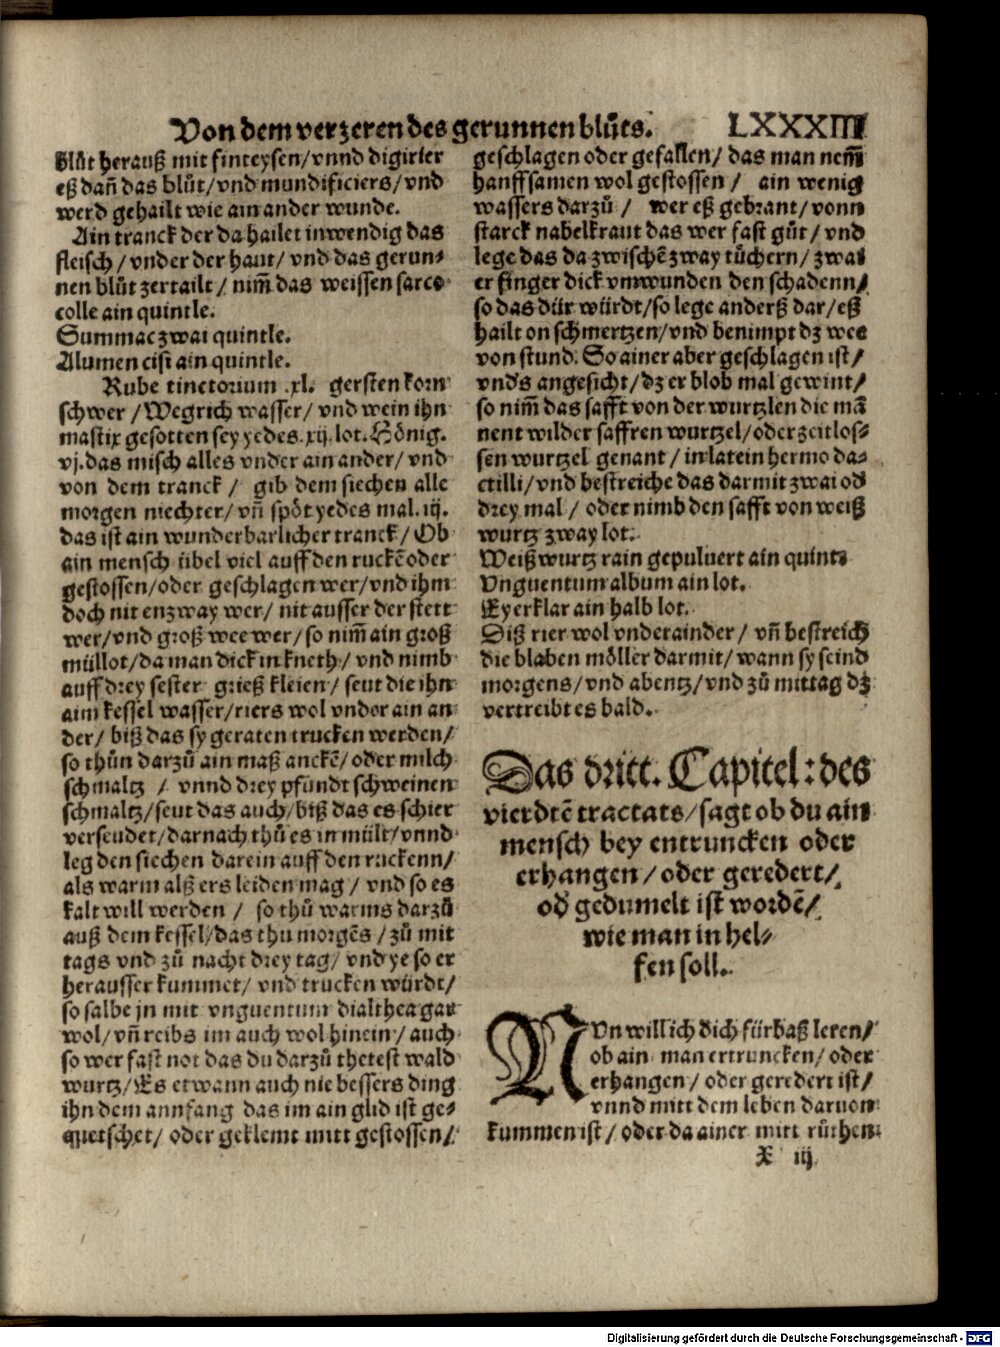 Von dem verzeren des gerunnen blůts. LXXXIIII
blůt herauß mit finteysen/vnnd digirier
eß dañ das blůt/vnd mundificiers/vnd
werd gehailt wie ain ander wunde.
Ain tranck der da hailet inwendig das
fleisch/vnder der haut/vnd das gerun⸗
nen blůt zertailt/nim̃ das weissen sarco
colle ain quintle.
Summac zwai quintle.
Alumen cisi ain quintle.
Rube tinctorium .xl. gersten korn
schwer/Wegrich wasser/vnd wein ihn
mastix gesotten sey yedes .xij. lot. Hönig.
vj. das misch alles vnder ain ander/vnd
von dem tranck/ gib dem siechen alle
morgen niechter/vñ spöt yedes mal .iij.
das ist ain wunderbarlicher tranck/Ob
ain mensch übel viel auff den ruckẽ oder
gestossen/oder geschlagen wer/vnd ihm
doch nit enzway wer/nit ausser der stett
wer/vnd groß wee wer/so nim̃ ain groß
müllot/da man dick in kneth/vnd nimb
auff drey sester grieß kleien/seut die ihn
aim kessel wasser/riers wol vnder ain an
der/biß das sy geraten trucken werden/
so thůn darzů ain maß anckẽ/oder milch
schmaltz / vnnd drey pfundt schweinen
schmaltz/seut das auch/biß das es schier
verseudet/darnach thů es in mült/vnnd
leg den siechen darein auff den ruckenn/
als warm alß ers leiden mag/vnd so es
kalt will werden/ so thů warms darzů
auß dem kessel/das thu morgẽs/zů mit
tags vnd zů nacht drey tag/vnd ye so er
herausser kummet/vnd trucken würdt/
so salbe jn mit vnguentum dialthea gar
wol/vñ reibs im auch wol hinein/auch
so wer fast not das du darzů thetest wald
wurtz/Es etwann auch nie bessers ding
ihn dem annfang das im ain glid ist ge⸗
quetschet/oder geklemt mitt gestossen/
geschlagen oder gefallen/das man nem̃
hanffsamen wol gestossen/ ain wenig
wassers darzů/ wer eß gebrant/vonn
starck nabelkraut das wer fast gůt/vnd
lege das da zwischẽ zway tůchern/zwai
er finger dick vmwunden den schadenn/
so das dür würdt/so lege anderß dar/eß
hailt on schmertzen/vnd benimpt dz wee
von stund. So ainer aber geschlagen ist/
vnds angesicht/dz er blob mal gewint/
so nim̃ das safft von der wurtzlen die mã
nent wilder saffren wurtzel/oder zeitlos⸗
sen wurtzel genant/in latein hermo da⸗
ctilli/vnd bestreiche das darmit zwai od
drey mal/oder nimb den safft von weiß
wurtz zway lot.
Weißwurtz rain gepuluert ain quint.
Vnguentum album ain lot.
Eyerklar ain halb lot.
Diß rier wol vnderainder/vñ bestreich
die blaben möller darmit/wann sy seind
morgens/vnd abentz/vnd zů mittag dz
vertreibt es bald.
Das dritt. Capitel: des
vierdtẽ tractats/sagt ob du ain
mensch bey entruncken oder
erhangen/oder geredert/
od gedumelt ist wordẽ/
wie man in hel⸗
fen soll.
NVn will ich dich fürbaß leren/
ob ain man ertruncken/oder
erhangen/oder geredert ist/
vnnd mitt dem leben daruon
kummen ist/oder da ainer mitt růthen
X iij
Digitalisierung gefördert durch die Deutsche Forschungsgemeinschaft - DFG